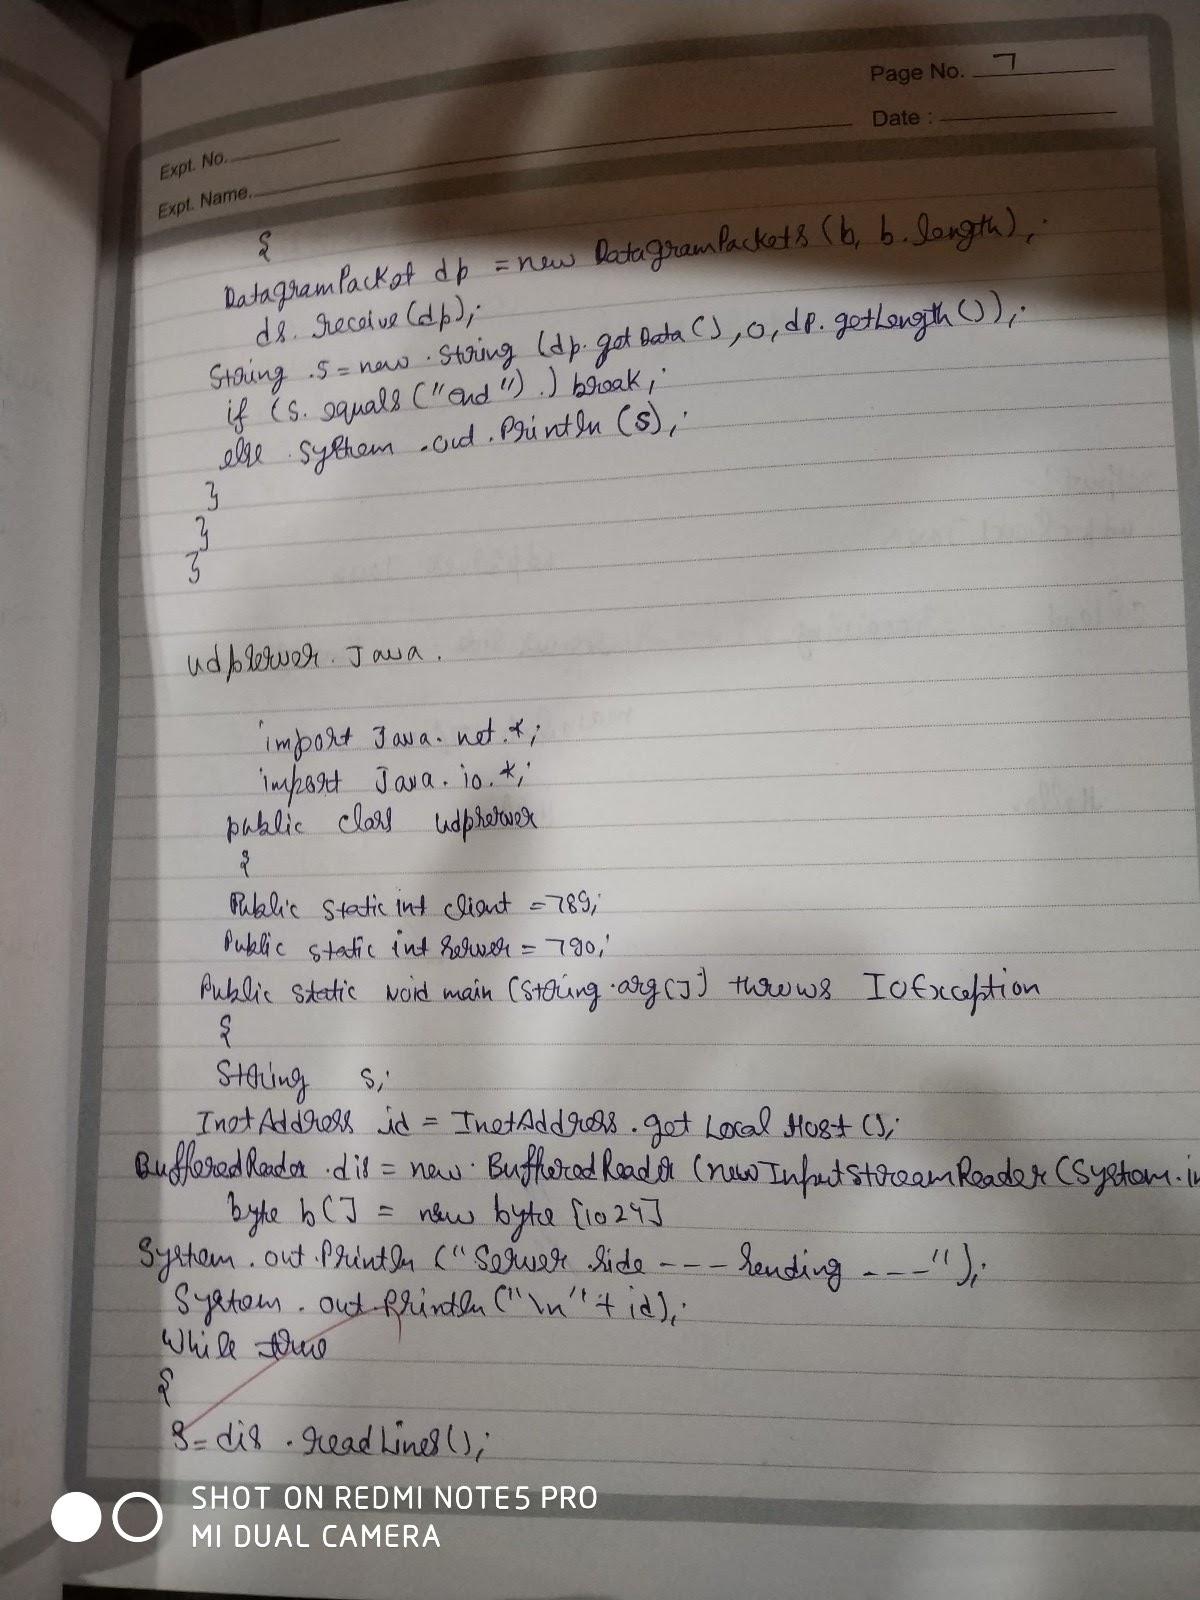 Page No. 7
Date :
Expt. No.
Expt. Name.
{
DatagramPacket dp = new DatagramPackets (b, b.length);
ds. receive(dp);
String .s = new . String (dp. getData(), 0, dp. getLength());
if (s. equals ("end") .) break;
else . System .out .Println (s);
}
}
}
udpserver. Java.
import Java. net.*;
import Java. io. *;
public class udpserver
{
Public static int client = 789;
Public static int server = 790;
Public static void main (String .arg[]) throws IOException
{
String s;
InetAddress id = InetAddress .get Local Host ();
BufferedReader .dis = new . BufferedReader (new InputStreamReader (System.in
byte b[] = new byte [1024]
System .out .Println ("Server side --- sending ---");
System . out .Println ("\n" + id);
While true
{
S = dis . readLines();
SHOT ON REDMI NOTE5 PRO
MI DUAL CAMERA